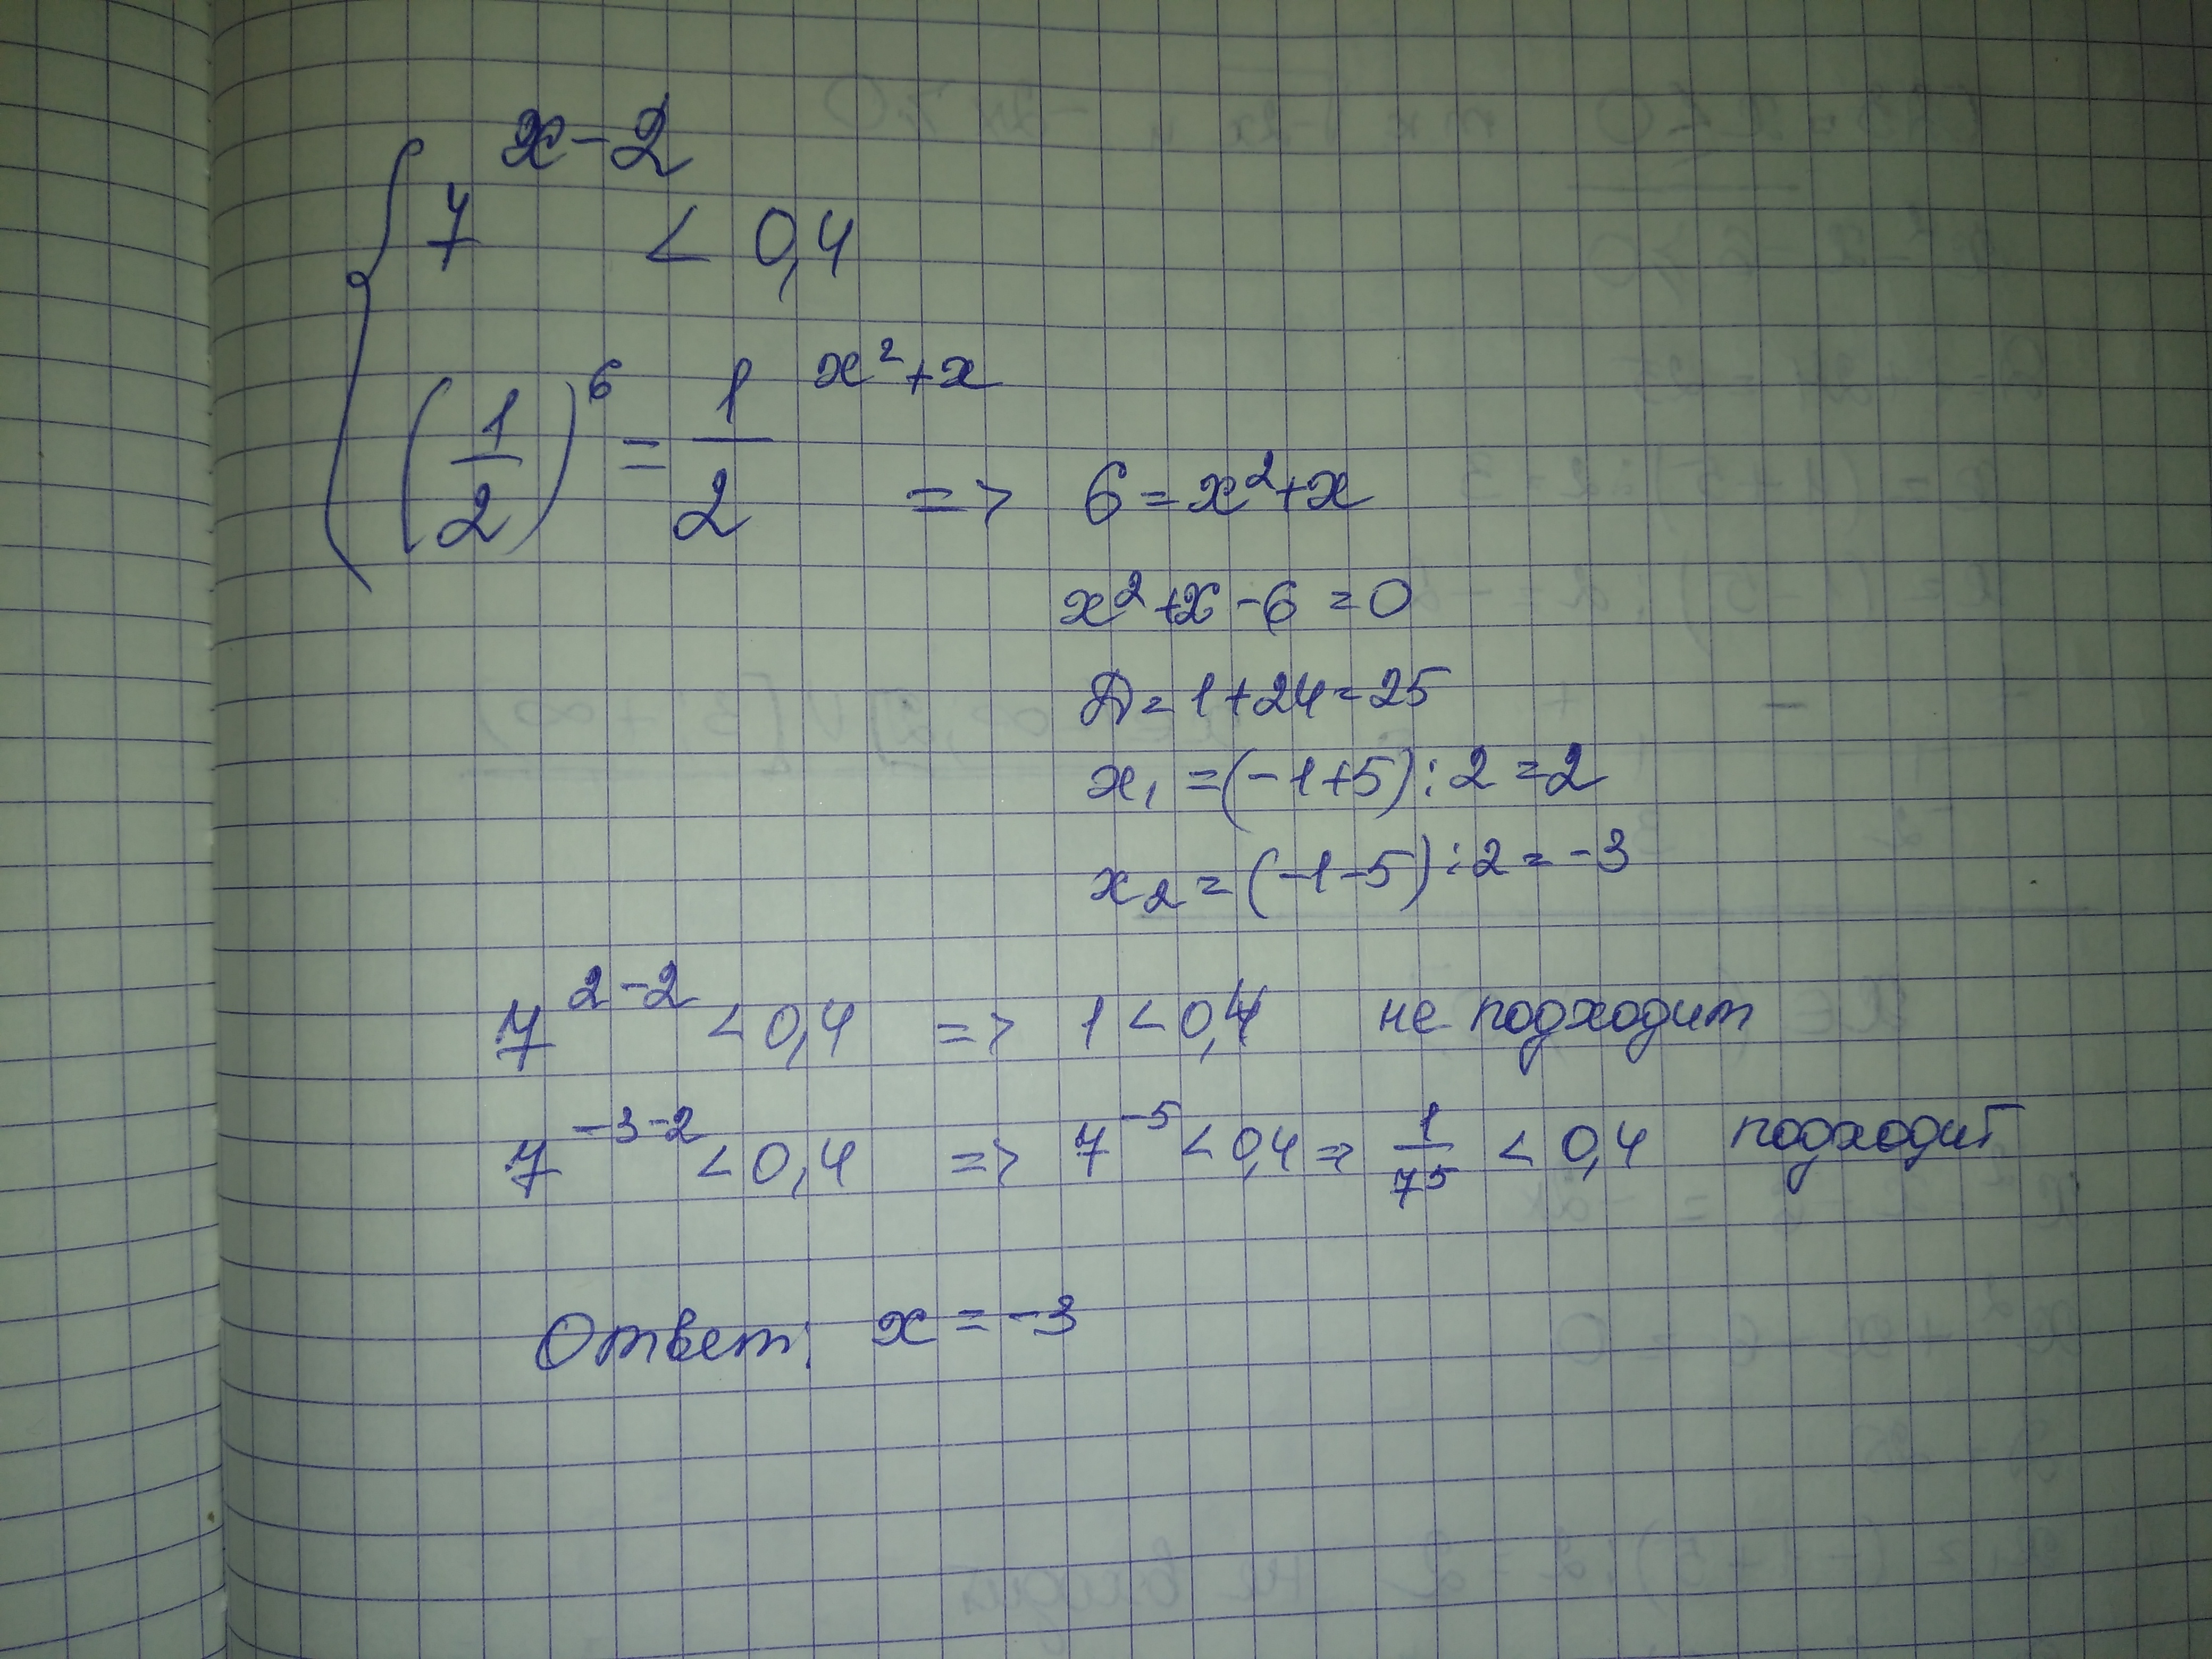 7^(x-2) < 0,4
(1/2)^6 = 1/2^(x²+x) => 6 = x²+x
x²+x-6=0
D=1+24=25
x₁=(-1+5):2=2
x₂=(-1-5):2=-3
7^(2-2) < 0,4 => 1 < 0,4 не подходит
7^(-3-2) < 0,4 => 7^(-5) < 0,4 => 1/7^5 < 0,4 подходит
Ответ: x = -3